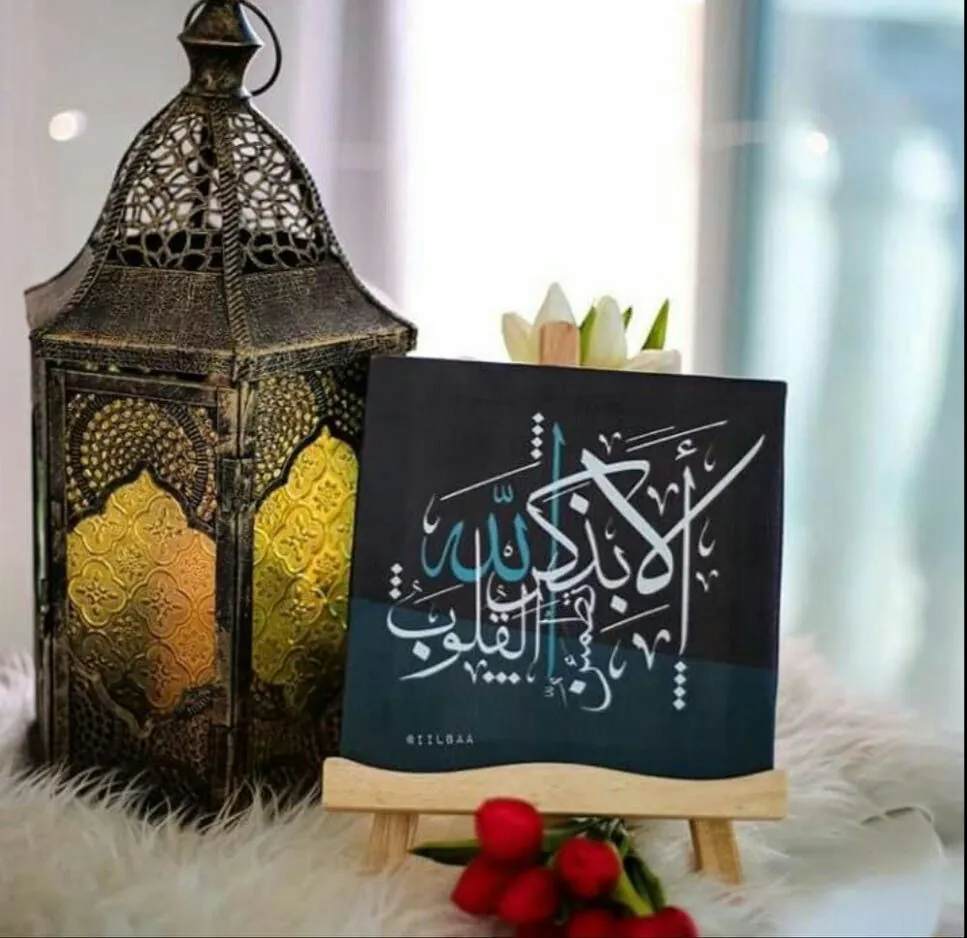 ألا بذكر الله تطمئن القلوب
@IILBAA